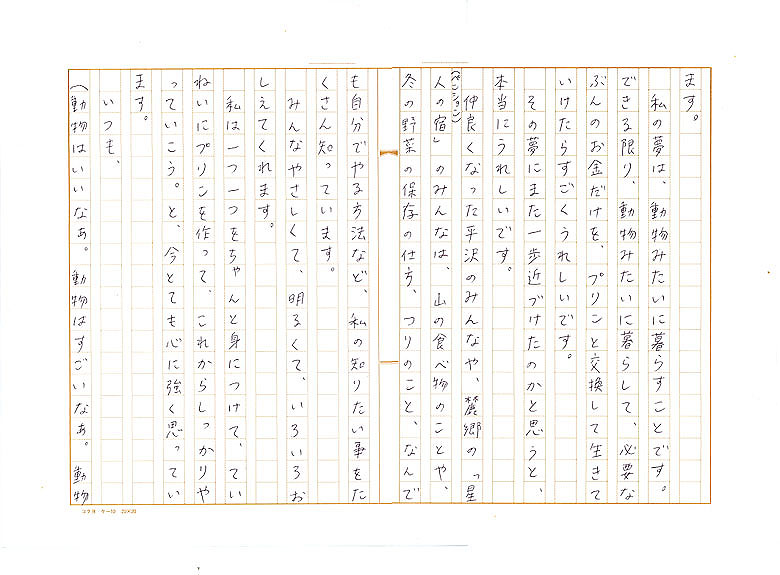 ます。
私の夢は、動物みたいに暮らすことです。
できる限り、動物みたいに暮らして、必要な
ぶんのお金だけを、プリンと交換して生きて
いけたらすごくうれしいです。
その夢にまた一歩近づけたのかと思うと、
本当にうれしいです。
仲良くなった平沢のみんなや、麓郷の「星
(ペンション)
人の宿」のみんなは、山の食べ物のことや、
冬の野菜の保存の仕方、つりのこと、なんで
も自分でやる方法など、私の知りたい事をた
くさん知っています。
みんなやさしくて、明るくて、いろいろお
しえてくれます。
私は一つ一つをちゃんと身につけて、てい
ねいにプリンを作って、これからしっかりや
っていこう。と、今とても心に強く思ってい
ます。
いつも、
(動物はいいなぁ。動物はすごいなぁ。動物
コクヨ ケー10 20×20